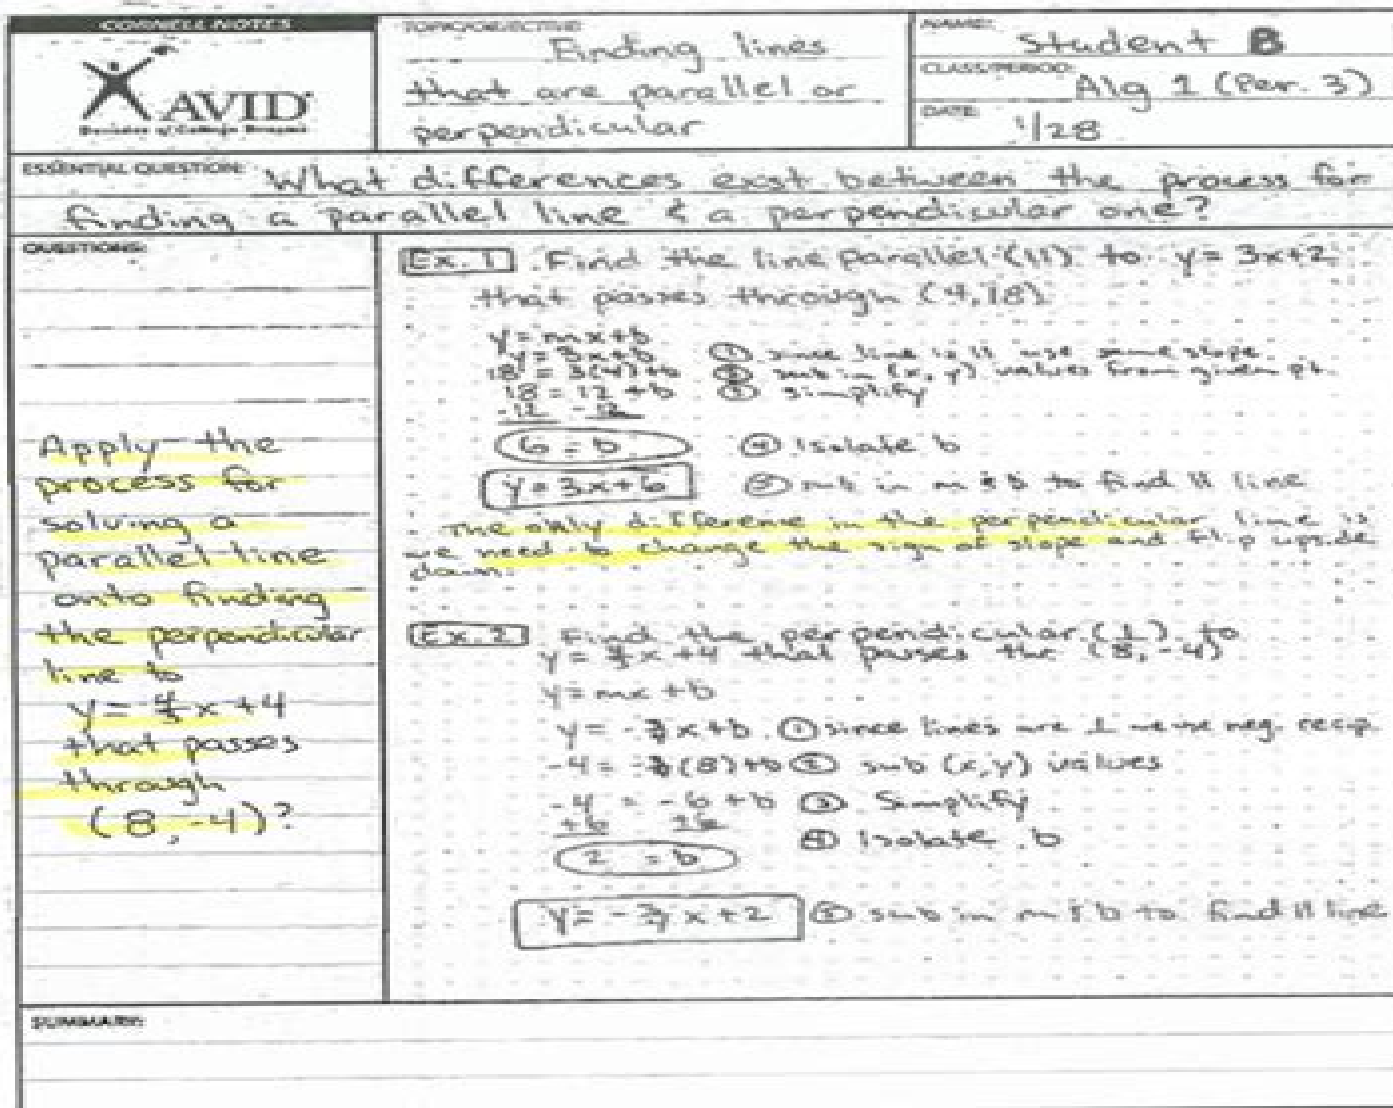 CORNELL NOTES
AVID
Decades of College Dreams
TOPIC/OBJECTIVE:
Finding lines
that are parallel or
perpendicular
NAME: Student B
CLASS/PERIOD: Alg 1 (Per. 3)
DATE: 1/28
ESSENTIAL QUESTION: What differences exist between the process for
finding a parallel line & a perpendicular one?
QUESTIONS:
Apply the
process for
solving a
parallel line
onto finding
the perpendicular
line to
y = x + 4
that passes
through
(8, -4)?
Ex. 1 Find the line parallel (||) to y = 3x+2
that passes through (4,18)
y = mx + b
y = 3x + b ① since line is || use same slope
18 = 3(4) + b ② sub in (x, y) values from given pt.
18 = 12 + b ③ simplify
-12 -12
6 = b ④ Isolate b
y = 3x + 6 ⑤ sub in m & b to find || line
The only difference in the perpendicular line is
we need to change the sign of slope and flip upside
down.
Ex. 2 Find the perpendicular (⊥) to
y = x + 4 that passes thr (8, -4)
y = mx + b
y = - x + b ① since lines are ⊥ we use neg. recip.
-4 = - (8) + b ② sub (x,y) values
-4 = -6 + b ③ Simplify
+6 +6
2 = b ④ Isolate b
y = - x + 2 ⑤ sub in m & b to find || line
SUMMARY: